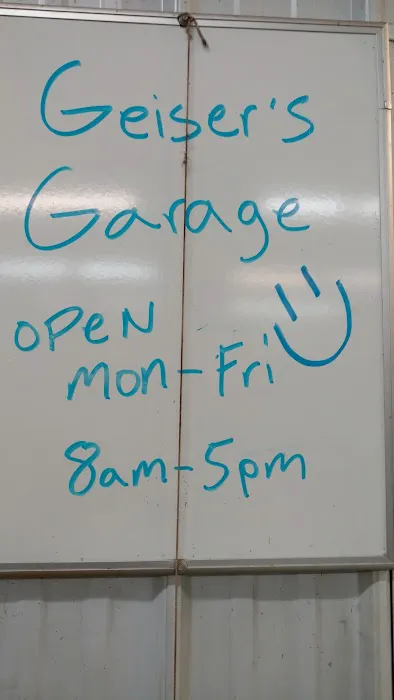 Geiser's
Garage
OPeN
Mon-Fri
8am-5pm